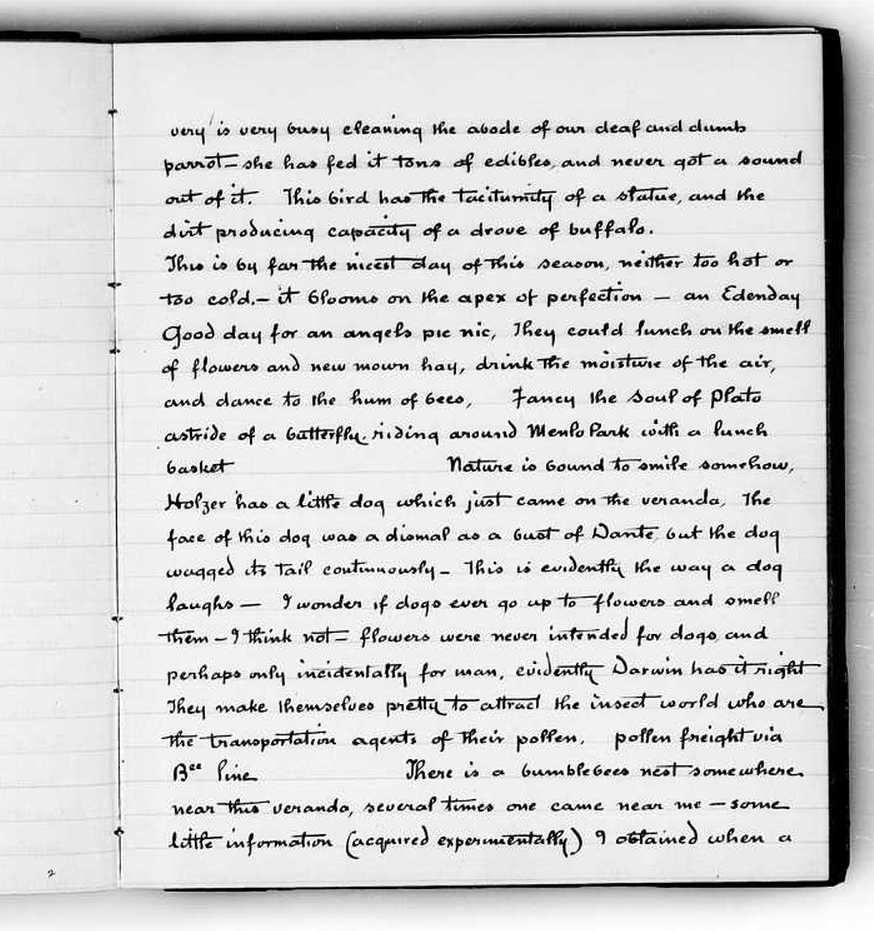 very is very busy cleaning the abode of our deaf and dumb
parrot — she has fed it tons of edibles, and never got a sound
out of it. This bird has the taciturnity of a statue, and the
dirt producing capacity of a drove of buffalo.
This is by far the nicest day of this season, neither too hot or
too cold. — it blooms on the apex of perfection — an Edenday
Good day for an angels pic nic, They could lunch on the smell
of flowers and new mown hay, drink the moisture of the air,
and dance to the hum of bees, Fancy the Soul of Plato
astride of a butterfly, riding around Menlo Park with a lunch
basket Nature is bound to smile somehow,
Holzer has a little dog which just came on the veranda, The
face of this dog was a dismal as a bust of Dante, but the dog
wagged its tail continuously — This is evidently the way a dog
laughs — I wonder if dogs ever go up to flowers and smell
them — I think not — flowers were never intended for dogs and
perhaps only incidentally for man, evidently Darwin has it right
They make themselves pretty to attract the insect world who are
the transportation agents of their pollen, pollen freight via
Bee line There is a bumblebees nest somewhere
near this veranda, several times one came near me — some
little information (acquired experimentally) I obtained when a
2